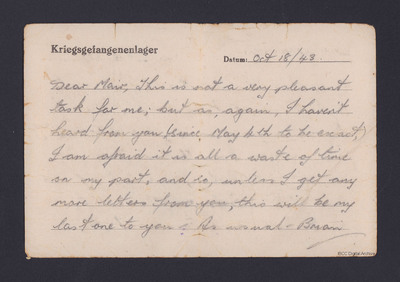 Kriegsgefangenenlager
Datum: Oct 18/43.
Dear Mair, This is not a very pleasant
task for me; but as, again, I haven't
heard from you (since May 4th to be exact)
I am afraid it is all a waste of time
on my part, and so, unless I get any
more letters from you, this will be my
last one to you. As usual - Brian
IBCC Digital Archive